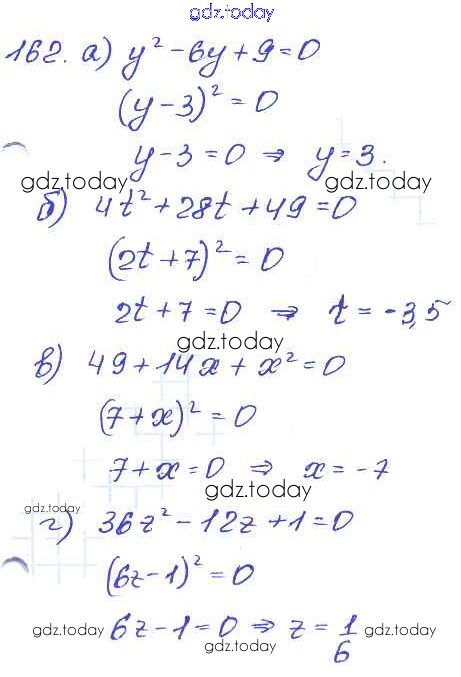 gdz.today
162. а) y² - 6y + 9 = 0
(y - 3)² = 0
y - 3 = 0 ⇒ y = 3.
gdz.today gdz.today
б) 4t² + 28t + 49 = 0
(2t + 7)² = 0
2t + 7 = 0 ⇒ t = -3,5
gdz.today
в) 49 + 14x + x² = 0
(7 + x)² = 0
7 + x = 0 ⇒ x = -7
gdz.today
gdz.today
г) 36z² - 12z + 1 = 0
(6z - 1)² = 0
gdz.today 6z - 1 = 0 ⇒ z = 1/6 gdz.today
gdz.today